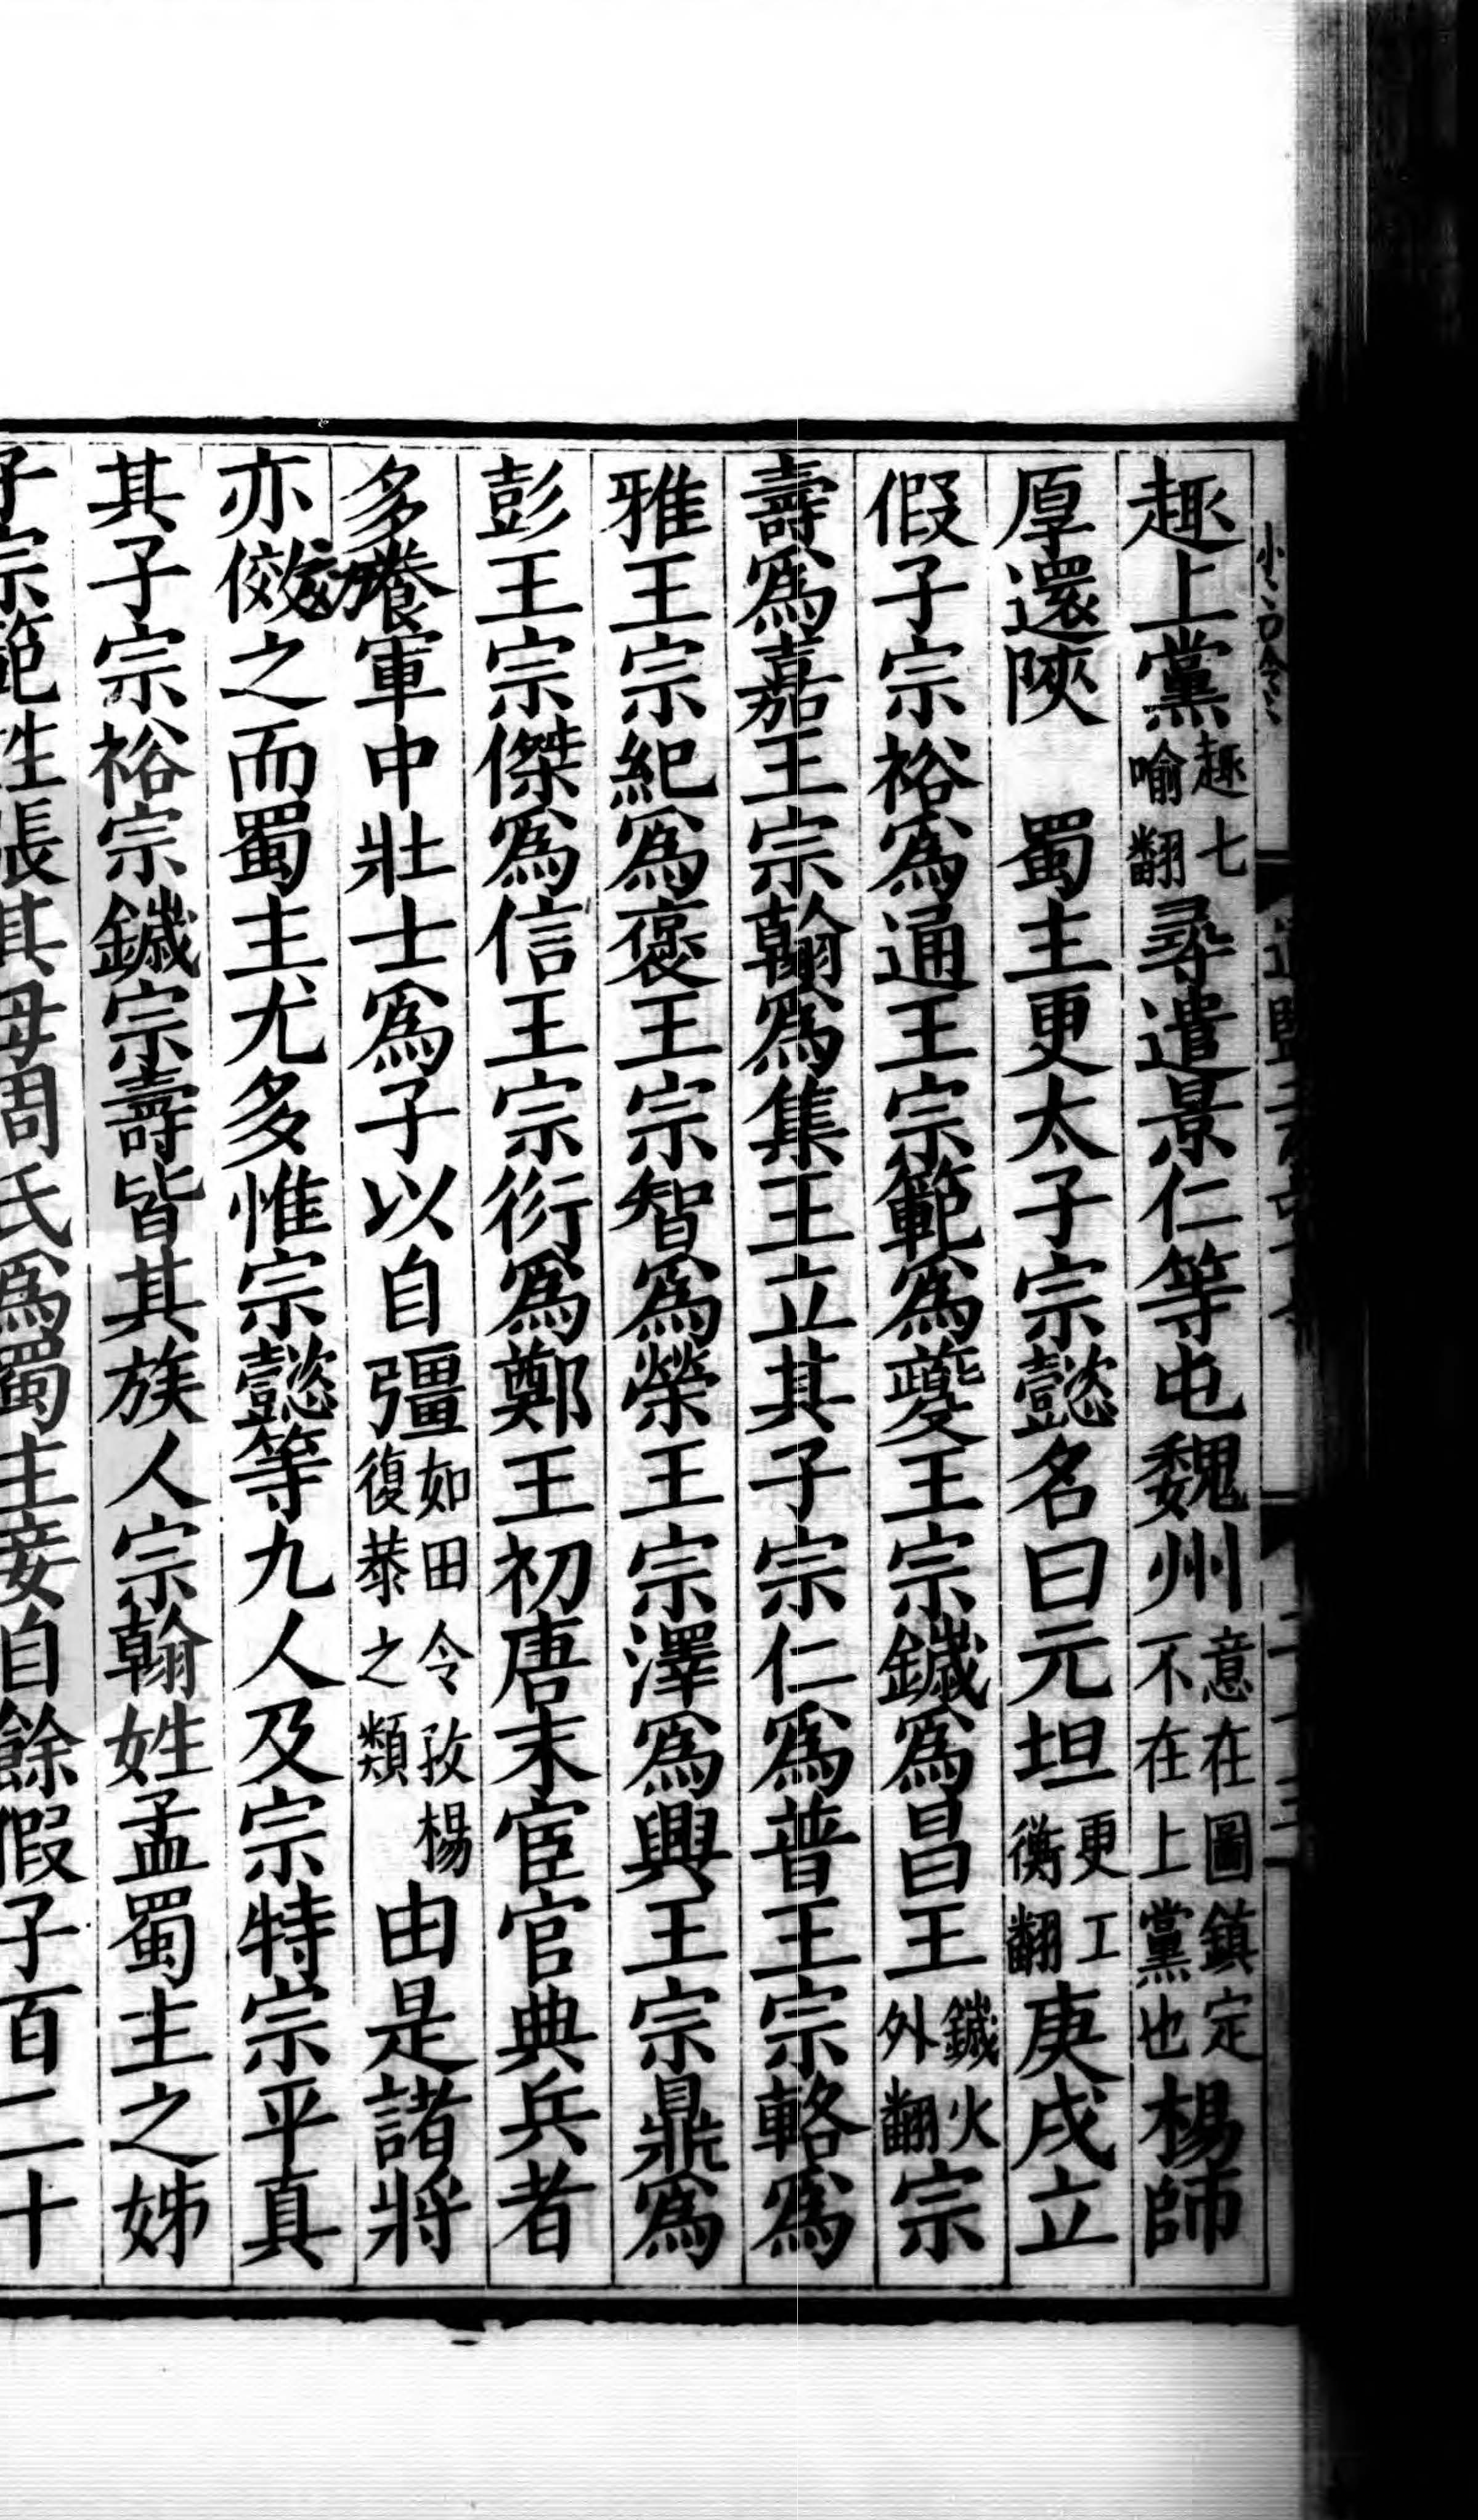 趣上黨趣七喻翻尋遣景仁等屯魏州意在圖鎮定不在上黨也楊師
厚還陝　蜀主更太子宗懿名曰元坦更工衡翻庚戌立
假子宗裕爲通王宗範爲夔王宗鐬爲昌王鐬火外翻宗
壽爲嘉王宗翰爲集王立其子宗仁爲普王宗輅爲
雅王宗紀爲褒王宗智爲榮王宗澤爲興王宗鼎爲
彭王宗傑爲信王宗衍爲鄭王初唐末宦官典兵者
多養軍中壯士爲子以自彊如田令孜楊復恭之類由是諸將
亦傚之而蜀主尤多惟宗懿等九人及宗特宗平真
其子宗裕宗鐬宗壽皆其族人宗翰姓孟蜀主之姊
子宗範姓張其母周氏爲蜀主妾自餘假子百二十